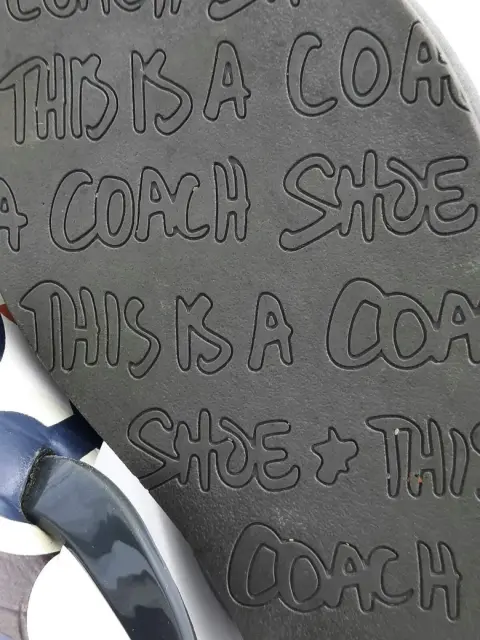 COACH SH
THIS IS A COA
A COACH SHOE
THIS IS A COA
SHOE ★ THIS
COACH